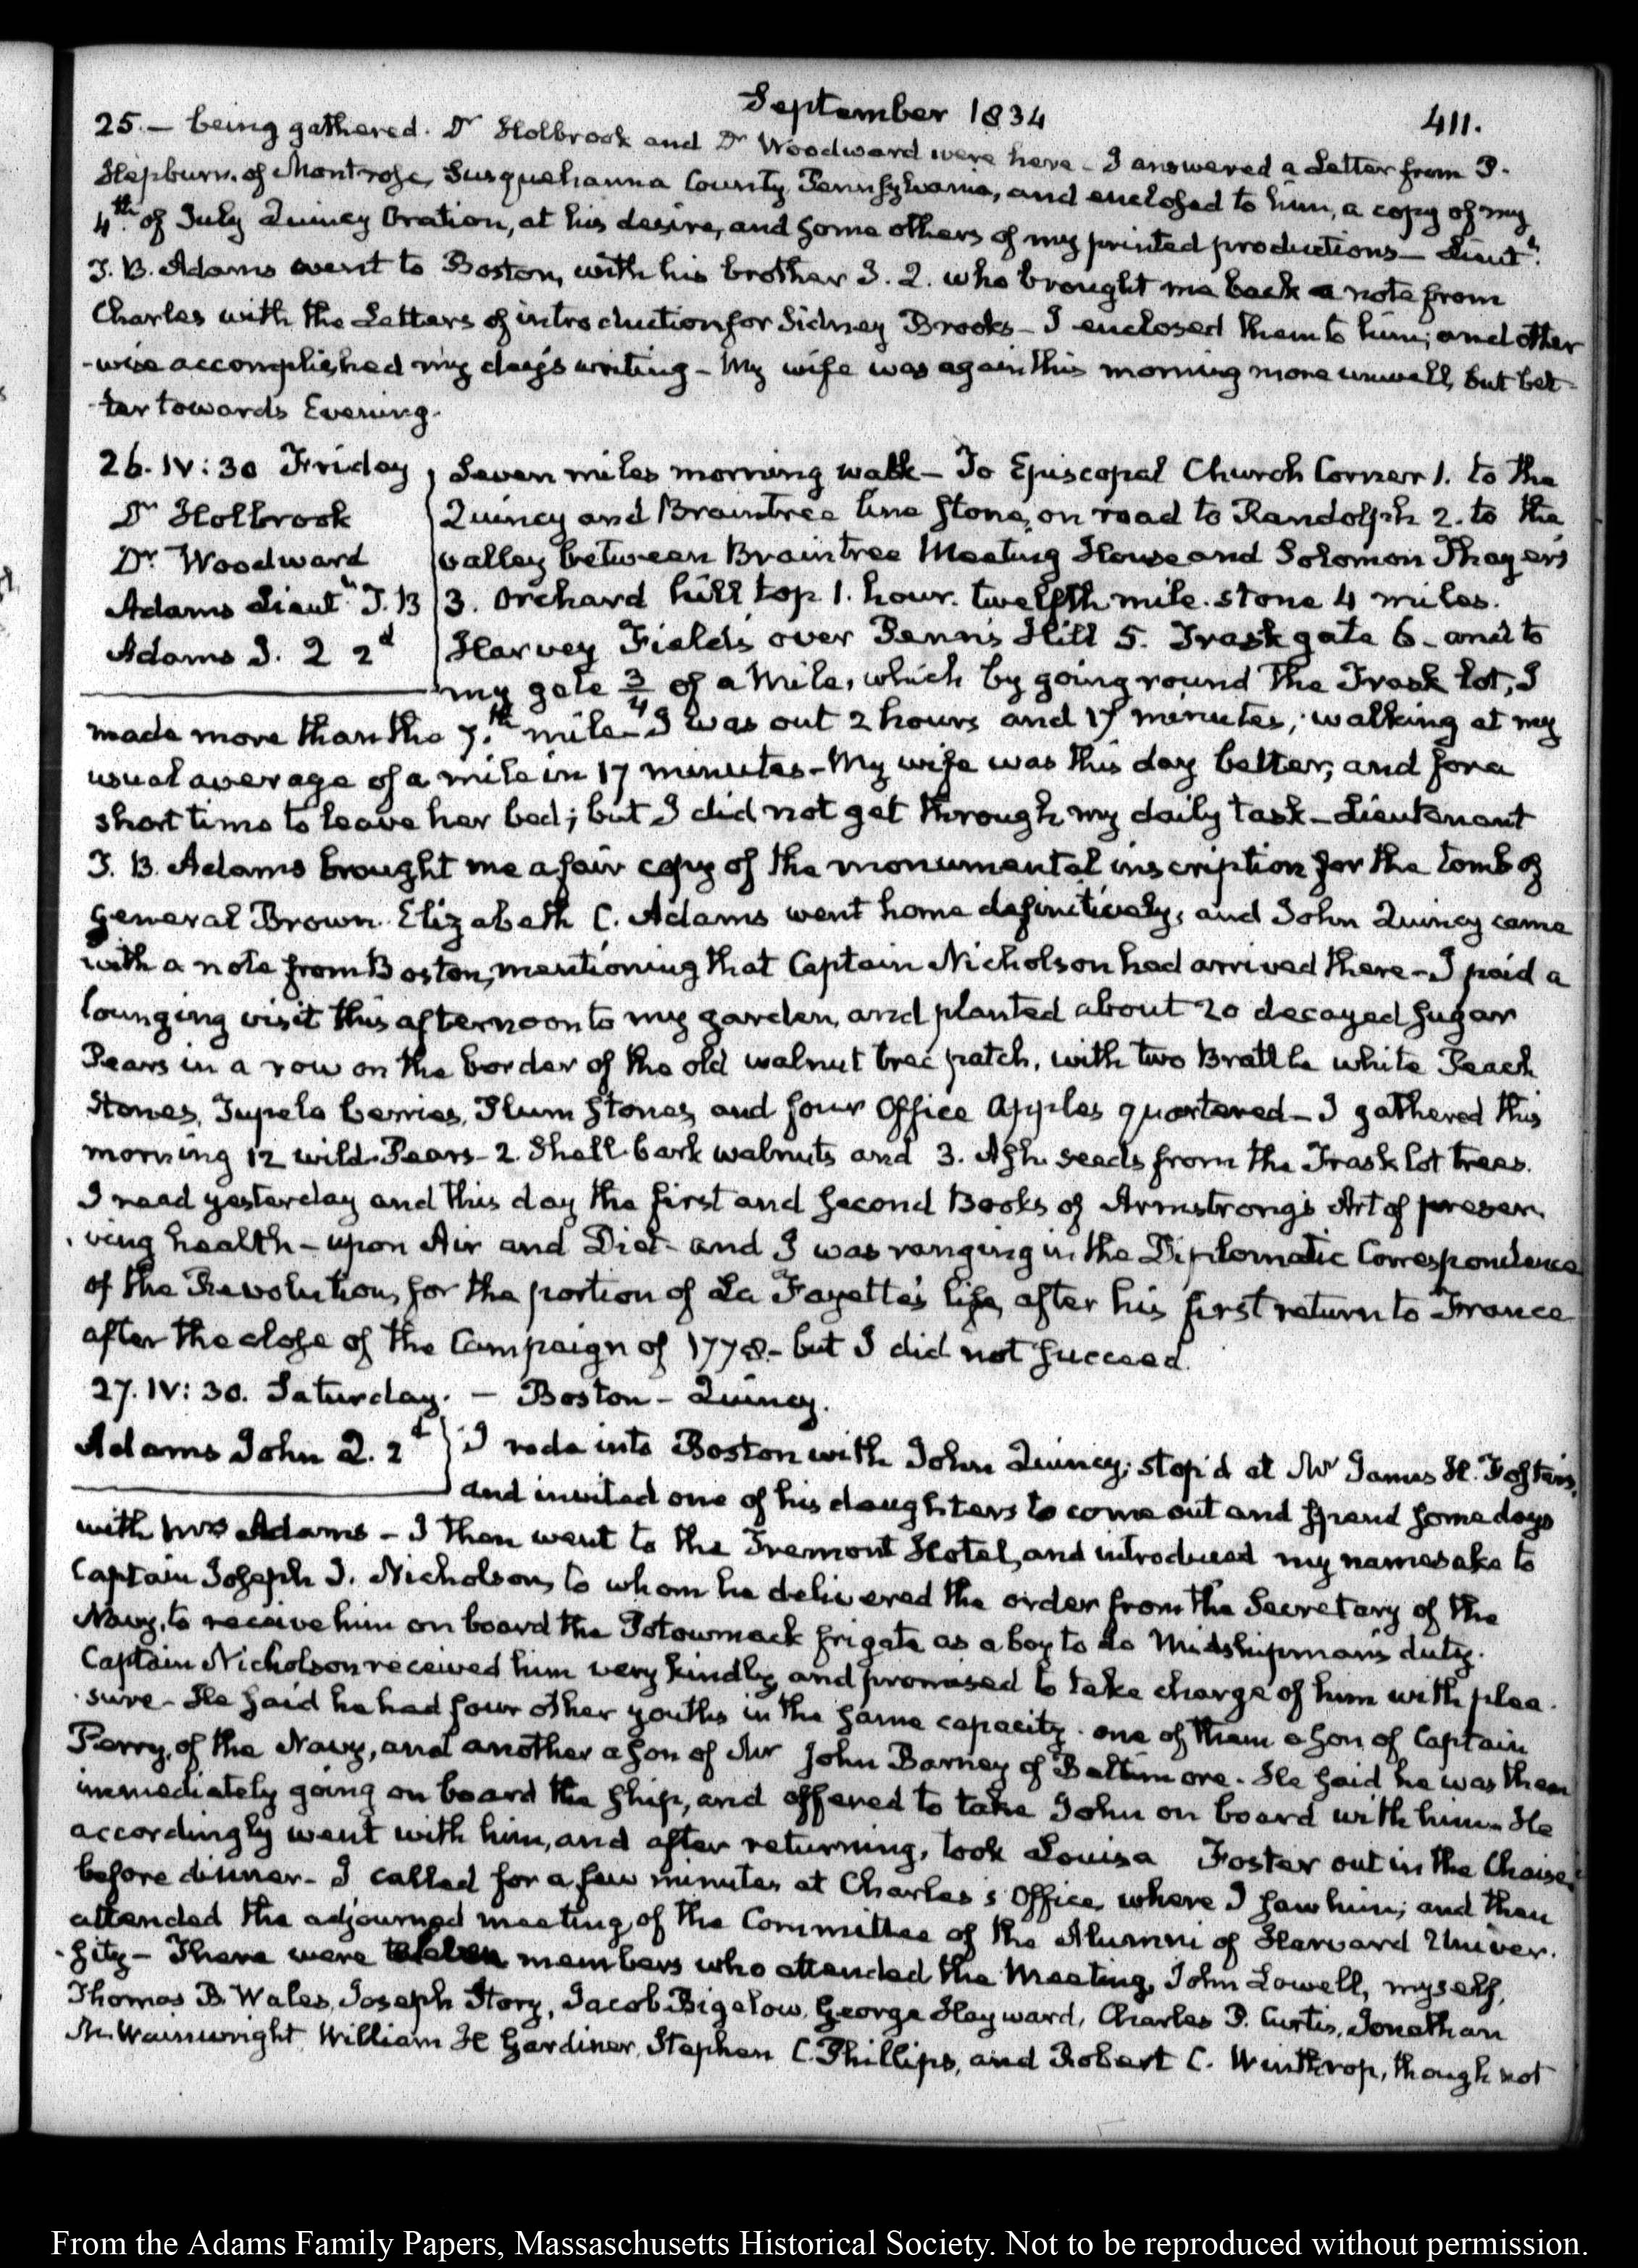 September 1834
411.
25.— being gathered. Dr Holbrook and Dr Woodward were here — I answered a Letter from P.
Hepburn. of Montrose, Susquehanna County, Pennsylvania, and enclosed to him, a copy of my
4th. of July Quincy Oration, at his desire, and some others of my printed productions — Lieutt.
T. B. Adams went to Boston, with his brother J. Q. who brought me back a note from
Charles with the Letters of introduction for Sidney Brooks — I enclosed them to him; and other
-wise accomplished my day's writing — My wife was again this morning more unwell, but bet-
-ter towards Evening.
26. IV: 30 Friday
Dr Holbrook
Dr. Woodward
Adams Lieutt T. B
Adams J. Q 2d
Seven miles morning walk — To Episcopal Church Corner 1. to the
Quincy and Braintree line stone, on road to Randolph 2. to the
valley between Braintree Meeting House and Solomon Thayer's
3. Orchard hill top 1. hour. twelfth mile. stone 4 miles.
Harvey Field's over Penn's Hill 5. Trask gate 6 — and to
my gate 3/4 of a Mile, which by going round the Trask lot, I
made more than the 7.th mile — I was out 2 hours and 17 minutes, walking at my
usual average of a mile in 17 minutes — My wife was this day better, and for a
short time to leave her bed; but I did not get through my daily task — Lieutenant
T. B. Adams brought me a fair copy of the monumental inscription for the tomb of
General Brown. Elizabeth C. Adams went home definitively, and John Quincy came
with a note from Boston, mentioning that Captain Nicholson had arrived there — I paid a
lounging visit this afternoon to my garden, and planted about 20 decayed sugar
Pears in a row on the border of the old walnut tree patch, with two Brattle white Peach
Stones, Tupelo berries, Plum stones, and four Office Apples quartered — I gathered this
morning 12 wild Pears — 2. Shell bark walnuts and 3. Ash seeds from the Trask lot trees.
I read yesterday and this day the first and second Books of Armstrong's Art of preser-
-ving health — upon Air and Diet — and I was ranging in the Diplomatic Correspondence
of the Revolution, for the portion of La Fayette's life, after his first return to France
after the close of the Campaign of 1778 — but I did not succeed.
27. IV: 30. Saturday. — Boston — Quincy.
Adams John Q. 2d
I rode into Boston with John Quincy; stop'd at Mr James H. Foster's,
and invited one of his daughters to come out and spend some days
with Mrs Adams — I then went to the Tremont Hotel, and introduced my namesake to
Captain Joseph J. Nicholson, to whom he delivered the order from the Secretary of the
Navy, to receive him on board the Potowmack frigate as a boy to do Midshipman's duty.
Captain Nicholson received him very kindly, and promised to take charge of him with plea-
-sure — He said he had four other youths in the same capacity. one of them a son of Captain
Perry, of the Navy, and another a son of Mr John Barney of Baltimore. He said he was then
immediately going on board the ship, and offered to take John on board with him — He
accordingly went with him, and after returning, took Louisa Foster out in the Chaise
before dinner — I called for a few minutes at Charles's Office, where I saw him; and then
attended the adjourned meeting, of the Committee of the Alumni of Harvard Univer-
-sity — There were members who attended the Meeting, John Lowell, myself,
Thomas B. Wales, Joseph Story, Jacob Bigelow, George Hayward, Charles P. Curtis, Jonathan
M. Wainwright, William H Gardiner, Stephen C. Phillips, and Robert C. Winthrop, though not
From the Adams Family Papers, Massachusetts Historical Society. Not to be reproduced without permission.